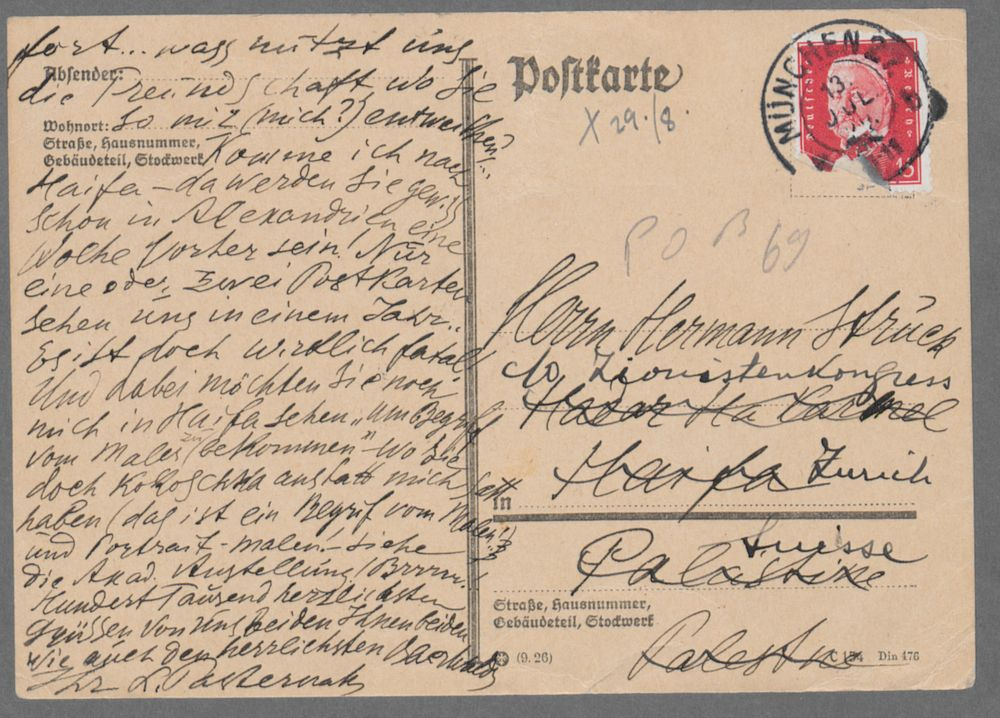 fort... wass nützt uns
die Freundschaft, wo Sie
so mir (mich?) entwischen?...
Komme ich nach
Haifa – da werden Sie gewiss
schon in Alexandrien eine
Woche vorher sein! Nur
eine oder zwei Postkarten
sehen uns in einem Jahr..
Es ist doch wirklich fatal!
Und dabei möchten Sie noch
mich in Haifa sehen „um Begriff
vom Maler zu bekommen" – wo Sie
doch Kokoschka anstatt mich satt
haben (das ist ein Begrif vom Malen!?
und Portrait-malen – siehe
die Akad. Austellung! Brrrm!
Hundert Tausend herzlichsten
Grüssen von uns beiden Ihnen beiden
wie auch den herrlichsten
Ihr L. Pasternak
Absender:
Wohnort:
Straße, Hausnummer,
Gebäudeteil, Stockwerk
Postkarte
X 29./8.
MÜNCHEN 2
13
JUL
Deutsches Reich
15
P O B 69
Herrn Hermann Struck
c/o Zionistenkongress
Hadar Ha Carmel
Haifa Zurich
in
Suisse
Palästine
Straße, Hausnummer,
Gebäudeteil, Stockwerk
Palestine
(9. 26)
C 154 Din 476